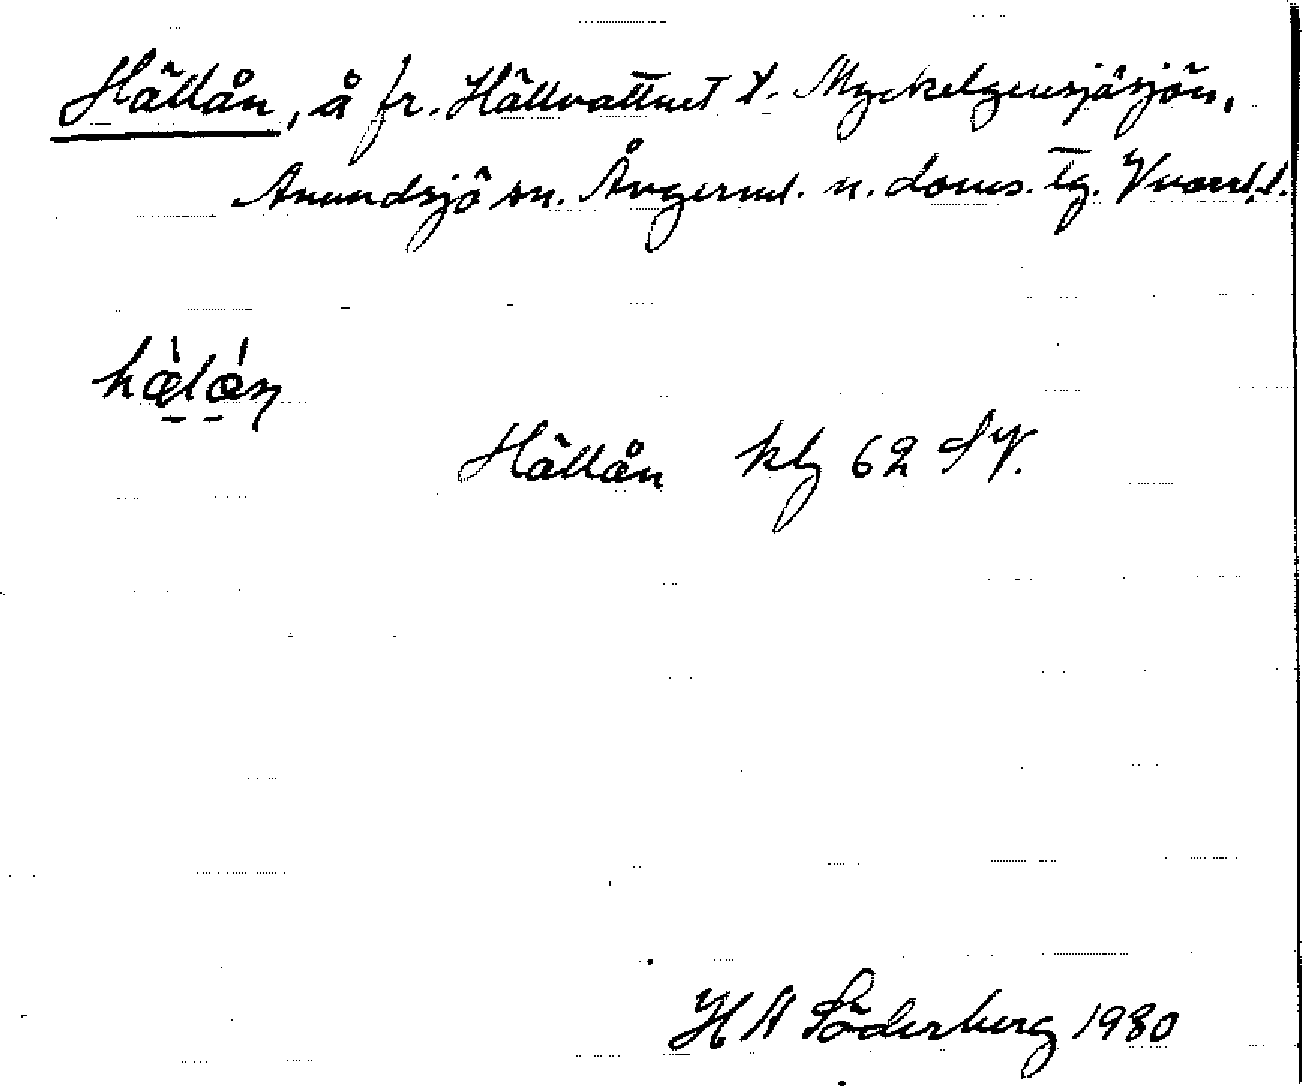 Hällån, å fr. Hällvattnet t. Myckelgensjösjön,
Anundsjö sn. Ångerml. n. doms. tg. Vnorrl. l.
Hällån kbl 62 SV.
H A Söderberg 1930